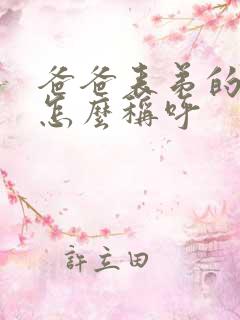 爸爸表弟的
怎麼稱呼
許立田